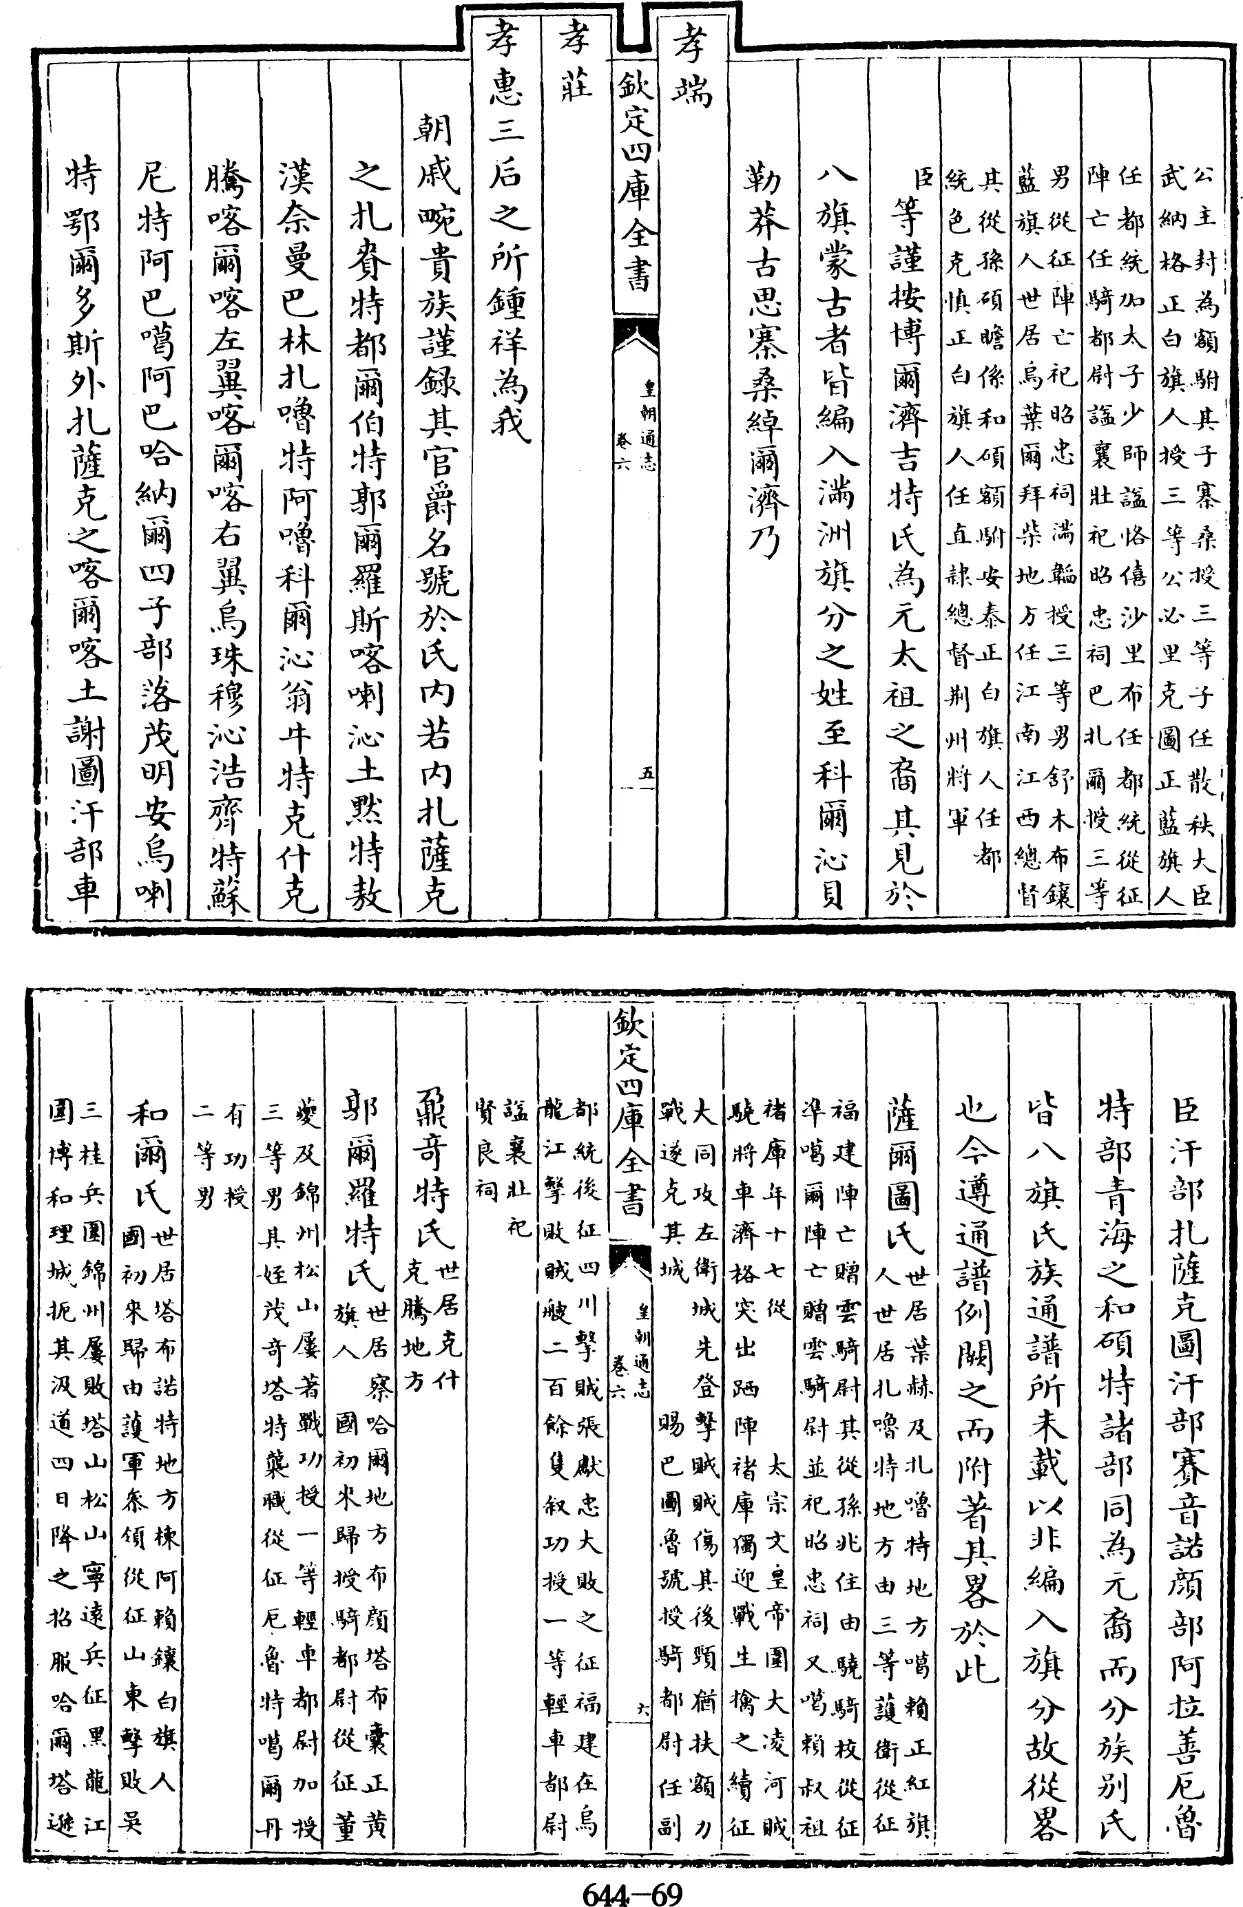 公主封為額駙其子寨桑授三等子任散秩大臣
武納格正白旗人授三等公必里克圖正藍旗人
任都統加太子少師諡恪僖沙里布任都統從征
陣亡任騎都尉諡襄壯祀昭忠祠巴扎爾授三等
男從征陣亡祀昭忠祠滿韜授三等男舒木布鑲
藍旗人世居烏葉爾拜柴地方任江南江西總督
其從孫碩瞻係和碩額駙安泰正白旗人任都
統色克慎正白旗人任直隸總督荆州將軍
臣等謹按博爾濟吉特氏為元太祖之裔其見於
八旗蒙古者皆編入滿洲旗分之姓至科爾沁貝
勒莽古思寨桑綽爾濟乃
孝端
欽定四庫全書
皇朝通志
卷六
五
孝莊
孝惠三后之所鍾祥為我
朝戚畹貴族謹錄其官爵名號於氏內若內扎薩克
之扎賚特都爾伯特郭爾羅斯喀喇沁土默特敖
漢奈曼巴林扎嚕特阿嚕科爾沁翁牛特克什克
騰喀爾喀左翼喀爾喀右翼烏珠穆沁浩齊特蘇
尼特阿巴噶阿巴哈納爾四子部落茂明安烏喇
特鄂爾多斯外扎薩克之喀爾喀土謝圖汗部車
臣汗部扎薩克圖汗部賽音諾顔部阿拉善厄魯
特部青海之和碩特諸部同為元裔而分族别氏
皆八旗氏族通譜所未載以非編入旗分故從畧
也今遵通譜例闕之而附著其畧於此
薩爾圖氏世居葉赫及扎嚕特地方噶賴正紅旗
人世居扎嚕特地方由三等護衛從征
福建陣亡贈雲騎尉其從孫兆住由驍騎校從征
凖噶爾陣亡贈雲騎尉並祀昭忠祠又噶賴叔祖
褚庫年十七從太宗文皇帝圍大凌河賊
驍將車濟格突出迺陣褚庫獨迎戰生擒之續征
大同攻左衛城先登擊賊賊傷其後頸猶扶額力
戰遂克其城賜巴圖魯號授騎都尉任副
欽定四庫全書
皇朝通志
卷六
六
都統後征四川擊賊張獻忠大敗之征福建在烏
龍江擊敗賊艘二百餘隻叙功授一等輕車都尉
諡襄壯祀
賢良祠
鼐奇特氏世居克什
克騰地方
郭爾羅特氏世居察哈爾地方布顔塔布囊正黄
旗人國初來歸授騎都尉從征董
夔及錦州松山屢著戰功授一等輕車都尉加授
三等男其姪茂奇塔特襲職從征厄魯特噶爾丹
有功授
二等男
和爾氏世居塔布諾特地方棟阿賴鑲白旗人
國初來歸由護軍叅領從征山東擊敗吳
三桂兵圍錦州屢敗塔山松山寧遠兵征黑龍江
圍博和理城扼其汲道四日降之招服哈爾塔遜
644-69